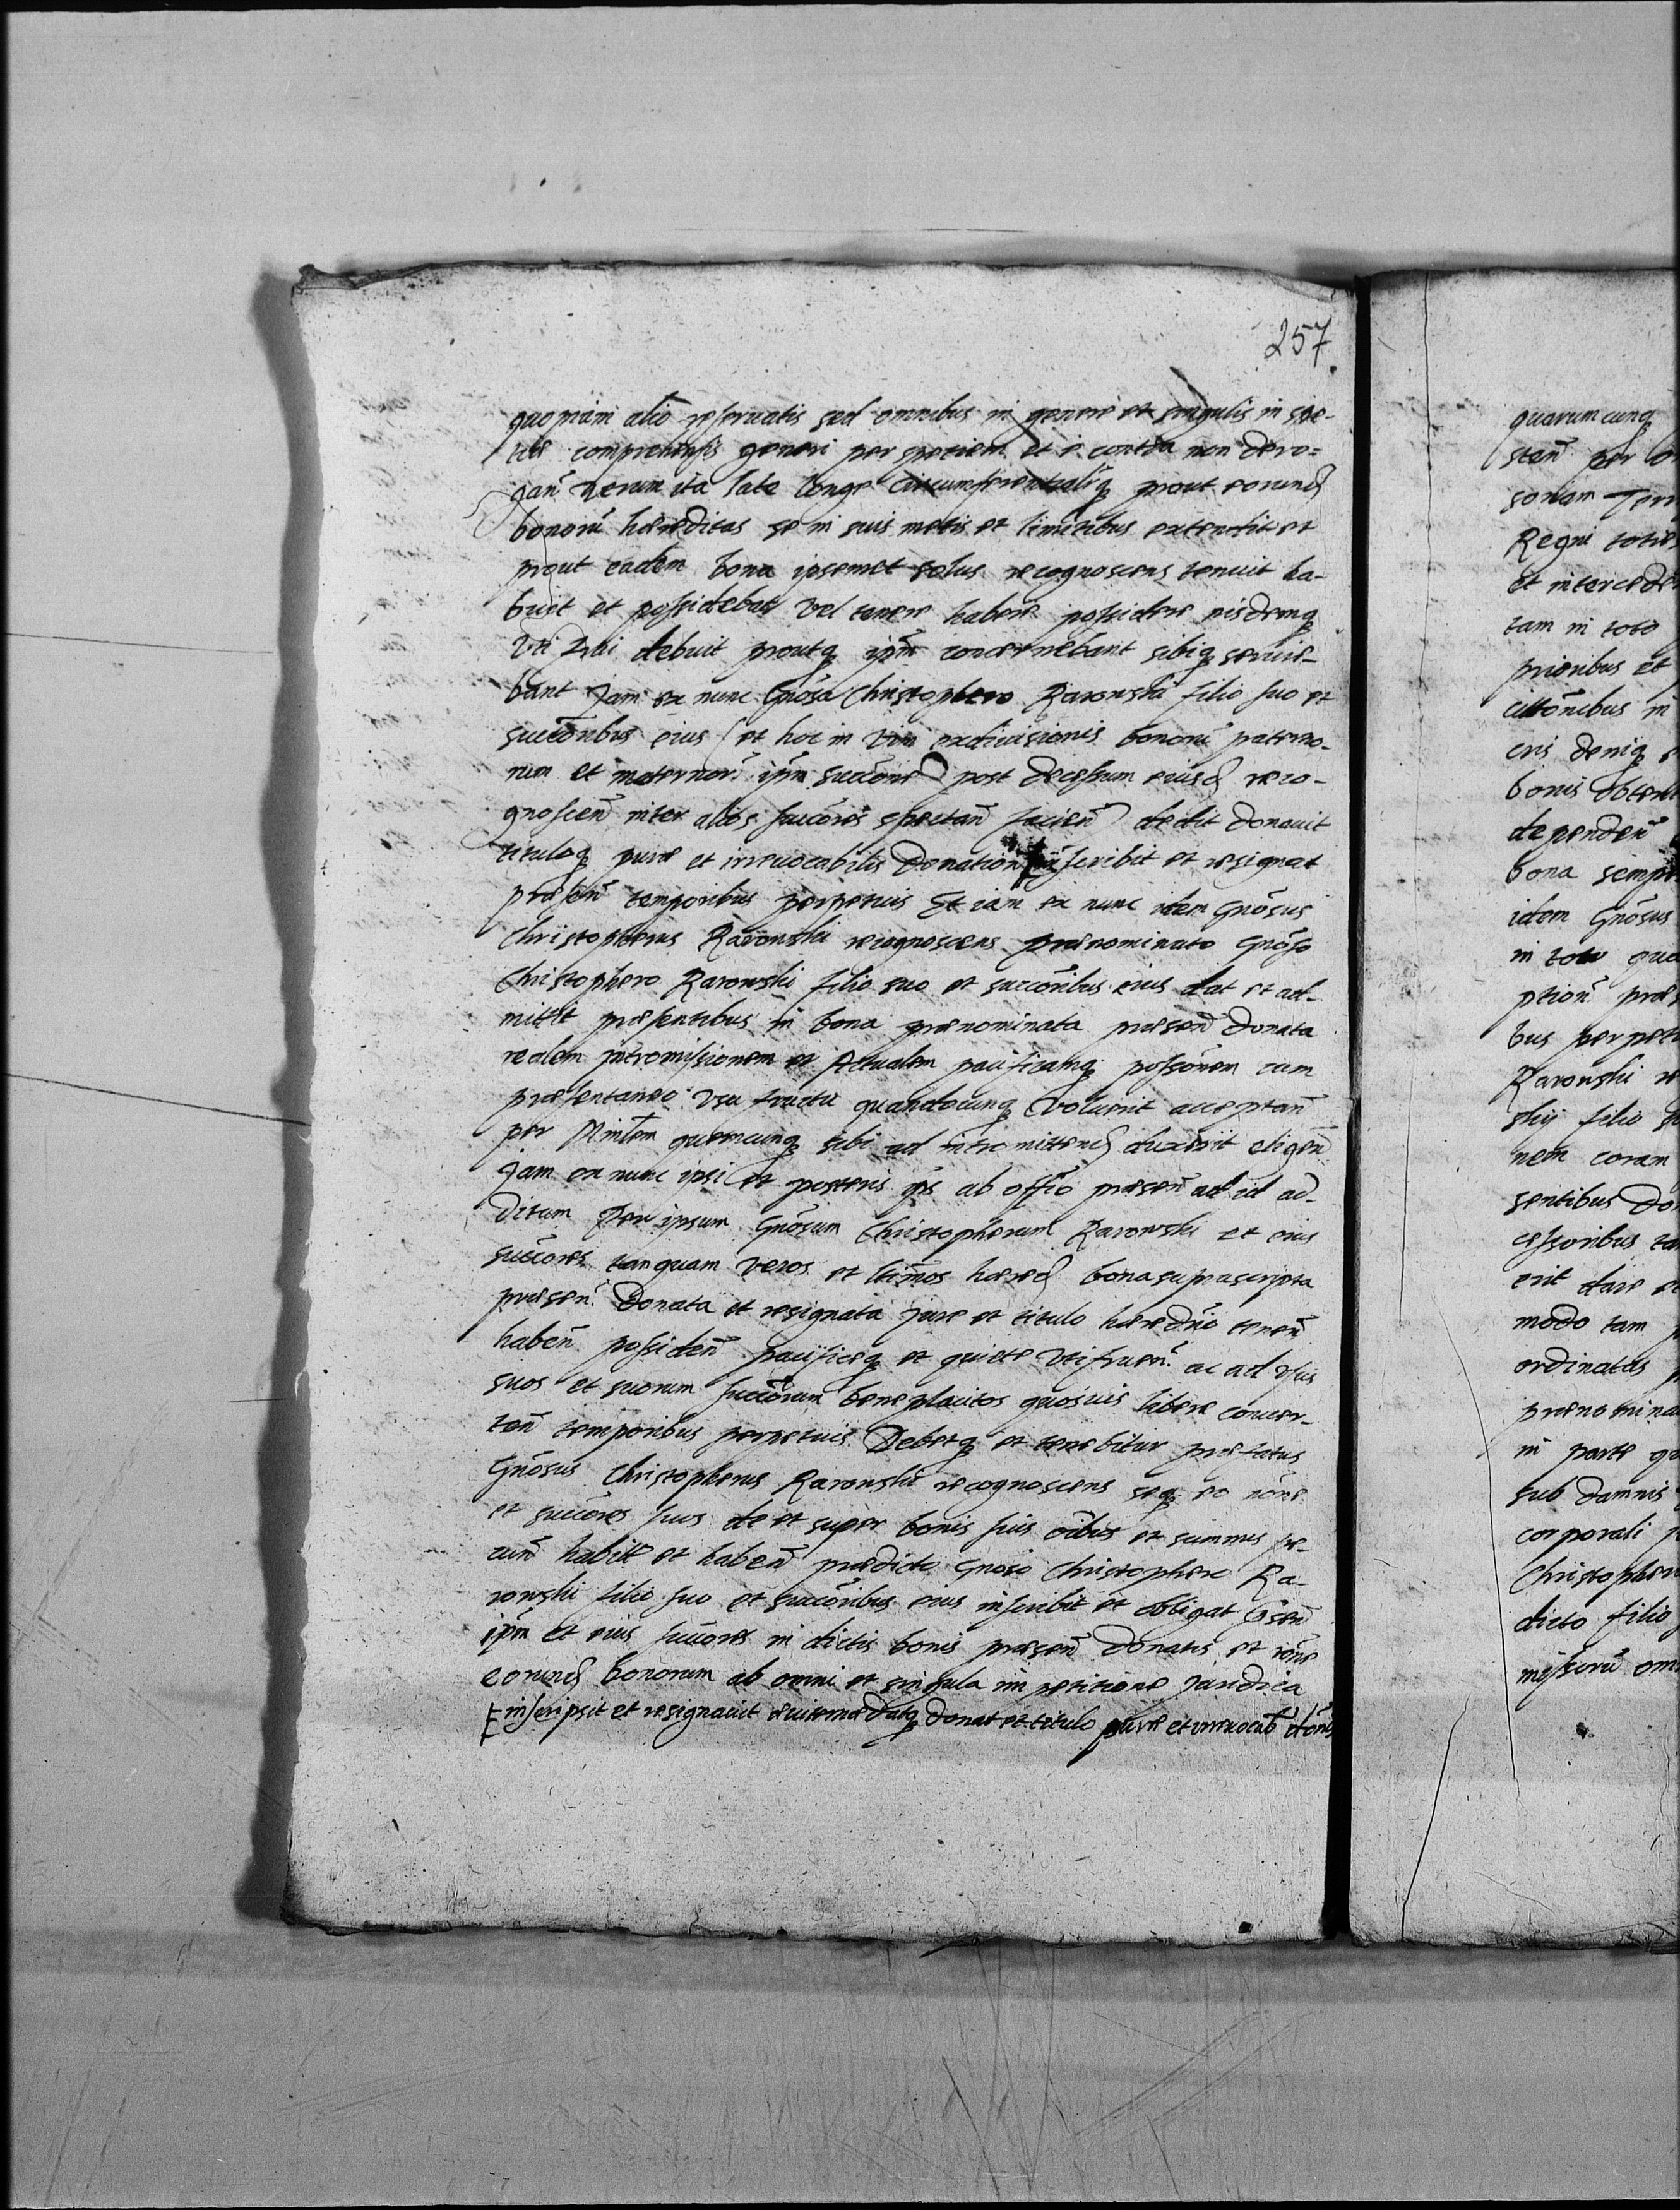 257
quopiam alio reseruatis sed omnibus in genere et singulis in spe-
tie comprehensis generi per spetiem et e contra non dero=
gan̄ verum ita late longe circumferentialiq prout eorund
bonorū haereditas se in suis metis et limitibus extendit et
prout eadem bona ipsemet solus recognoscens tenuit ha-
buit et possidebat vel tenere habere possidere eisdemq
vti frui debuit proutq ipm̄ concernebant sibiq seruie-
bant Jam ex nunc Gnōso Christophero Rarowski filio suo et
succōribus eius (et hoc in vim exdiuisionis bonorū paterno-
rum et maternorū ipm̄ succōne post decessum eiusd reco-
gnoscen̄ inter alios succōres spectan̄ facien̄) dedit donauit
tituloq pure et irreuocabilis donation inscribit et resignat
praesen̄ temporibus perpetuis Et iam ex nunc idem Gnōsus
Christopherus Rarowski recognoscens praenominato Gnōso
Christophero Rarowski filio suo et succōribus eius dat et ad-
mittit praesentibus in bona praenominata praesen̄ donata
realem intromissionem et Actualem pacificamq possōnem cum
praesentaneo vsu fructu quandocunq voluerit acceptan̄
per Minlem quemcunq sibi ad intromittend duxerit eligen̄
Jam ex nunc ipsi et posteris ips ab offō praesen̄ ad id ad-
ditum Per ipsum Gnōsum Christopherum Rarowski et eius
succōres tanquam veros et ltimos haered bona suprascripta
praesen̄ donata et resignata jure et titulo haeredrio tenen̄
haben̄ possiden̄ pacificeq et quiete vtifruen̄ ac ad vsus
suos et suorum succōrum beneplacitos quosuis libere conuer-
ten̄ temporibus perpetuis Debetq et tenebitur praefatus
Gnōsus Christopherus Rarowski recognoscens seq eo rōne
et succōres suos de et super bonis suis oībus et summis pe-
cun̄ habit et haben̄ praedicto Gnōso Christophero Ra-
rowski filio suo et succōribus eius inscribit et obligat
ipm̄ et eius succōres in dictis bonis praesen̄ donatis et rōne
eorund bonorum ab omni et singula impetitione Juridica
inscripsit et resignauit datq donat et titulo pure et irreuocab dōnis
quarumcunq
sten̄ per
sonam Terr
Regni
et interceden
tam in toto
prioribus et
in
cris deniq
bonis obten
dependen̄
bona semp
idem Gnōsus
in toto qua
ption̄ prae
bus perpetu
Rarowski re
skij filio
nem coram
sentibus do
cessoribus ta
erit dare
modo tam
ordinatas
praenomina
in parte qu
sub damnis
corporali
Christopher
dicto filio
om